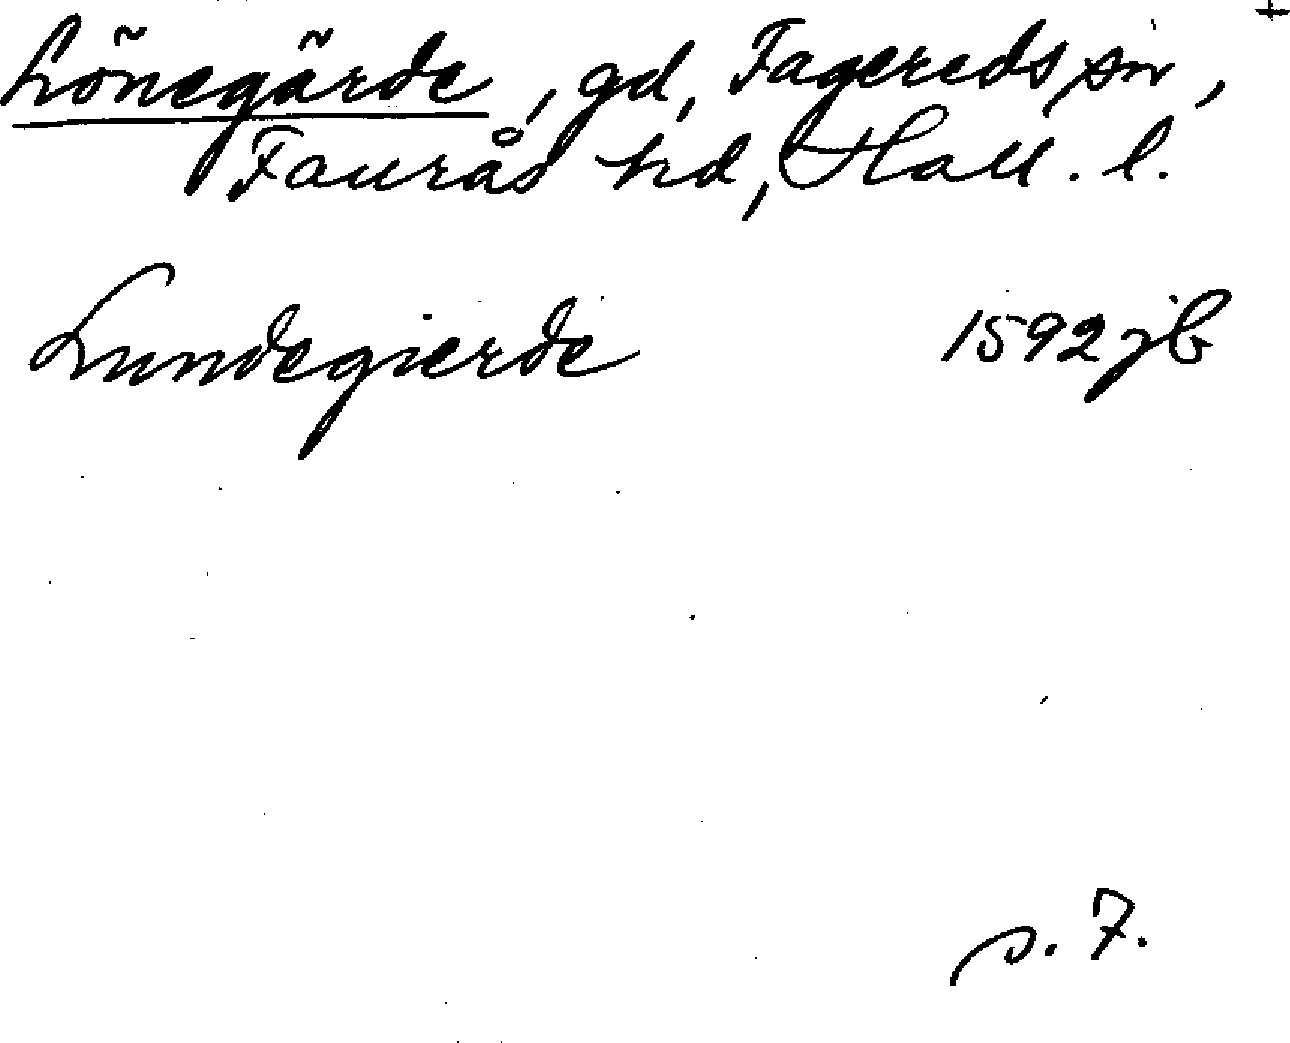 +
Lönegärde, gd, Fagereds sn,
Faurås hd, Hall. l.
Lundegierde 1592 jb
s. 7.